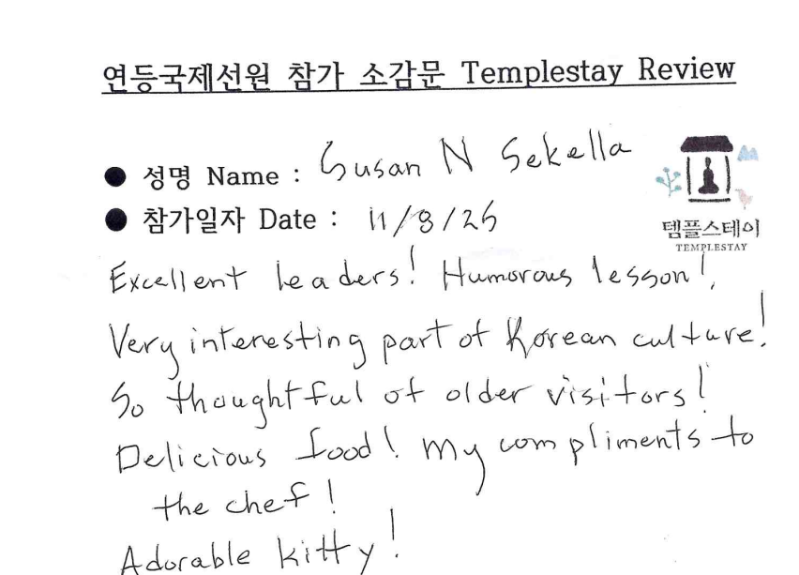 연등국제선원 참가 소감문 Templestay Review
● 성명 Name : Susan N Sekella
● 참가일자 Date : 11/8/25
템플스테이
TEMPLESTAY
Excellent leaders! Humorous lesson!
Very interesting part of Korean culture!
So thoughtful of older visitors!
Delicious food! My compliments to
the chef!
Adorable kitty!